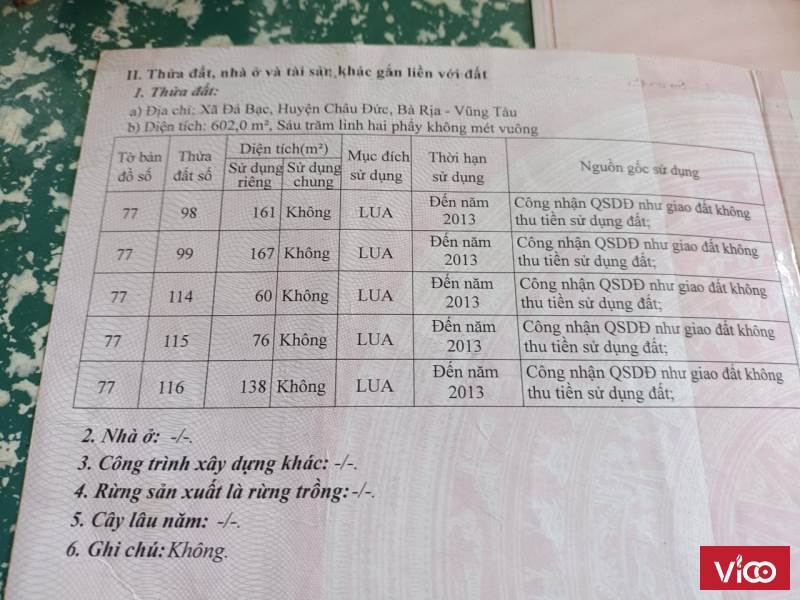 II. Thửa đất, nhà ở và tài sản khác gắn liền với đất
1. Thửa đất:
a) Địa chỉ: Xã Đá Bạc, Huyện Châu Đức, Bà Rịa - Vũng Tàu
b) Diện tích: 602,0 m², Sáu trăm linh hai phẩy không mét vuông
Tờ bản đồ số | Thửa đất số | Diện tích(m²) | Mục đích sử dụng | Thời hạn sử dụng | Nguồn gốc sử dụng
Sử dụng riêng | Sử dụng chung
77 | 98 | 161 | Không | LUA | Đến năm 2013 | Công nhận QSDĐ như giao đất không thu tiền sử dụng đất;
77 | 99 | 167 | Không | LUA | Đến năm 2013 | Công nhận QSDĐ như giao đất không thu tiền sử dụng đất;
77 | 114 | 60 | Không | LUA | Đến năm 2013 | Công nhận QSDĐ như giao đất không thu tiền sử dụng đất;
77 | 115 | 76 | Không | LUA | Đến năm 2013 | Công nhận QSDĐ như giao đất không thu tiền sử dụng đất;
77 | 116 | 138 | Không | LUA | Đến năm 2013 | Công nhận QSDĐ như giao đất không thu tiền sử dụng đất;
2. Nhà ở: -/-.
3. Công trình xây dựng khác: -/-.
4. Rừng sản xuất là rừng trồng: -/-.
5. Cây lâu năm: -/-.
6. Ghi chú: Không.
Vico